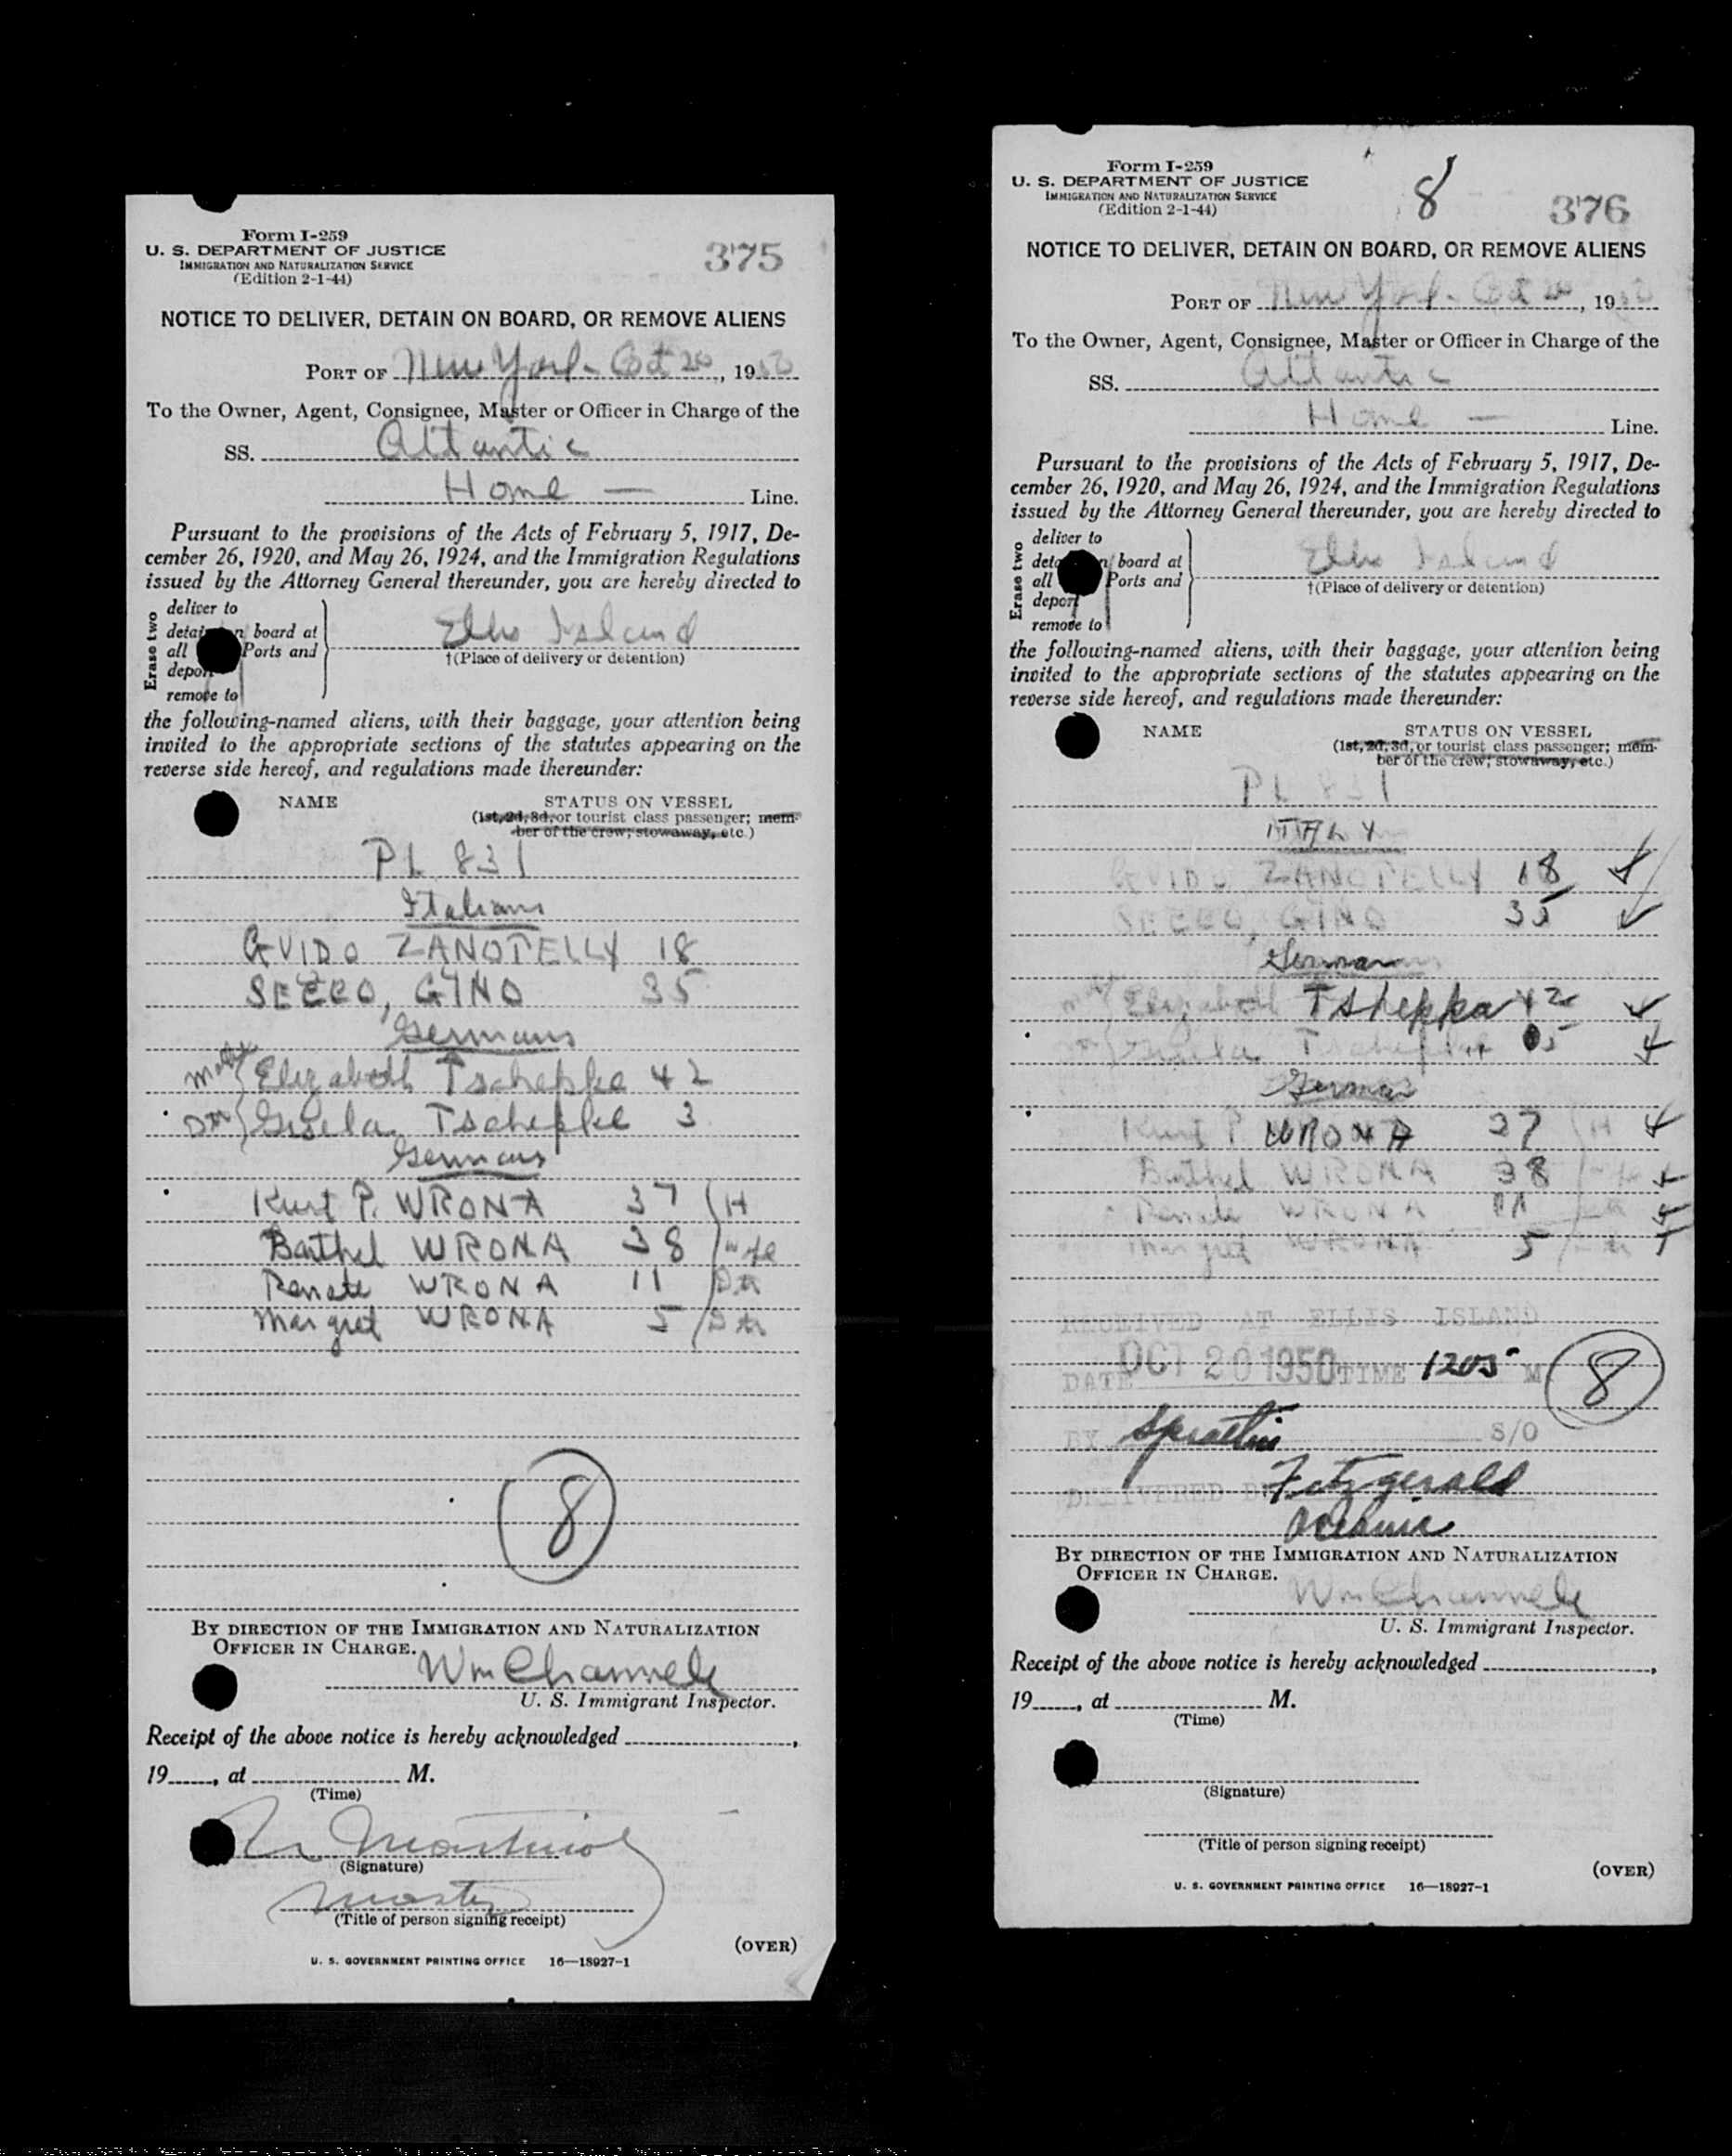 Form I-259
U. S. DEPARTMENT OF JUSTICE
IMMIGRATION AND NATURALIZATION SERVICE
(Edition 2-1-44)
375
NOTICE TO DELIVER, DETAIN ON BOARD, OR REMOVE ALIENS
PORT OF New York - Oct 20, 1950
To the Owner, Agent, Consignee, Master or Officer in Charge of the
SS. Atlantic
Home — Line.
Pursuant to the provisions of the Acts of February 5, 1917, De-
cember 26, 1920, and May 26, 1924, and the Immigration Regulations
issued by the Attorney General thereunder, you are hereby directed to
Erase two
deliver to
detain on board at
all Ports and
deport
remove to
Ellis Island
†(Place of delivery or detention)
the following-named aliens, with their baggage, your attention being
invited to the appropriate sections of the statutes appearing on the
reverse side hereof, and regulations made thereunder:
NAME STATUS ON VESSEL
(1st, 2d, 3d, or tourist class passenger; mem-
ber of the crew; stowaway, etc.)
PL 831
Italians
GVIDO ZANOTELLY 18
SECCO, GINO 35
Germans
Elizabeth Tschepke 42
Dtr Gisela Tschepke 3
Germans
Kurt P. WRONA 37 H
Barthel WRONA 38 wife
Renate WRONA 11 Dtr
Margret WRONA 5 Dtr
8
BY DIRECTION OF THE IMMIGRATION AND NATURALIZATION
OFFICER IN CHARGE.
Wm Channele
U. S. Immigrant Inspector.
Receipt of the above notice is hereby acknowledged
19 , at M.
(Time)
(Signature)
Master
(Title of person signing receipt)
(OVER)
U. S. GOVERNMENT PRINTING OFFICE 16—18927-1
Form I-259
U. S. DEPARTMENT OF JUSTICE
IMMIGRATION AND NATURALIZATION SERVICE
(Edition 2-1-44)
8
376
NOTICE TO DELIVER, DETAIN ON BOARD, OR REMOVE ALIENS
PORT OF New York - Oct 20, 1950
To the Owner, Agent, Consignee, Master or Officer in Charge of the
SS. Atlantic
Home — Line.
Pursuant to the provisions of the Acts of February 5, 1917, De-
cember 26, 1920, and May 26, 1924, and the Immigration Regulations
issued by the Attorney General thereunder, you are hereby directed to
Erase two
deliver to
detain on board at
all Ports and
deport
remove to
Ellis Island
†(Place of delivery or detention)
the following-named aliens, with their baggage, your attention being
invited to the appropriate sections of the statutes appearing on the
reverse side hereof, and regulations made thereunder:
NAME STATUS ON VESSEL
(1st, 2d, 3d, or tourist class passenger; mem-
ber of the crew; stowaway, etc.)
PL 831
ITALY
GVIDO ZANOTELLY 18
SECCO, GINO 35
Germans
Elizabeth Tsheppa 42
Gisela
German
Kurt P. WRONA 37 H
Barthel WRONA 38
Renate WRONA 11
Margret WRONA 5
RECEIVED AT ELLIS ISLAND
DATE OCT 20 1950 TIME 1205 M
8
BY S/O
DELIVERED BY Fitzgerald
Oceanic
BY DIRECTION OF THE IMMIGRATION AND NATURALIZATION
OFFICER IN CHARGE.
Wm Channele
U. S. Immigrant Inspector.
Receipt of the above notice is hereby acknowledged
19 , at M.
(Time)
(Signature)
(Title of person signing receipt)
(OVER)
U. S. GOVERNMENT PRINTING OFFICE 16—18927-1